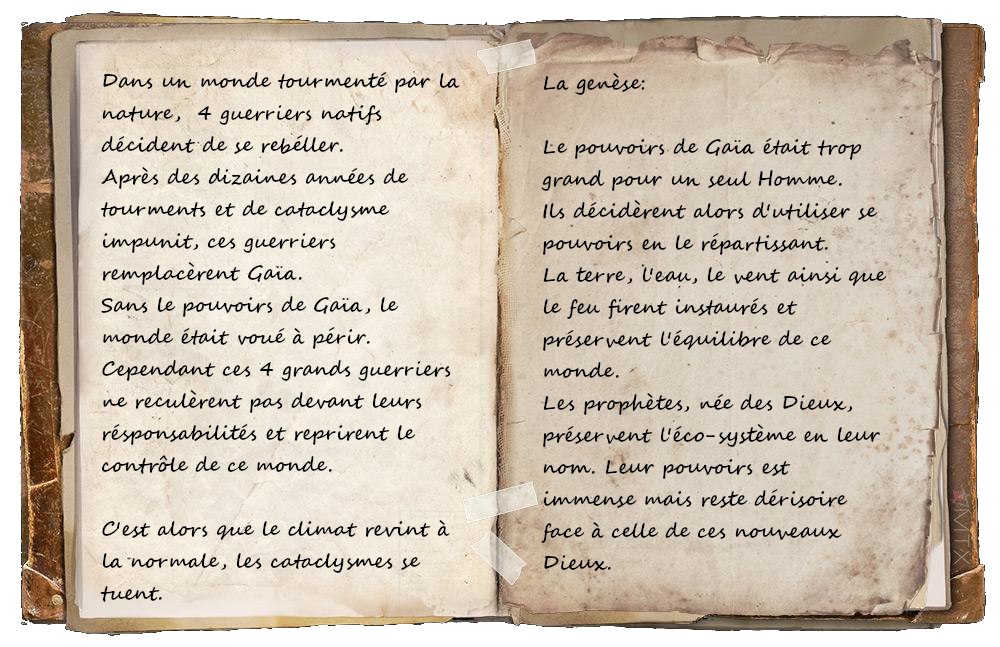 Dans un monde tourmenté par la
nature, 4 guerriers natifs
décident de se rebéller.
Après des dizaines années de
tourments et de cataclysme
impunit, ces guerriers
remplacèrent Gaïa.
Sans le pouvoirs de Gaïa, le
monde était voué à périr.
Cependant ces 4 grands guerriers
ne reculèrent pas devant leurs
résponsabilités et reprirent le
contrôle de ce monde.
C'est alors que le climat revint à
la normale, les cataclysmes se
tuent.
La genèse:
Le pouvoirs de Gaïa était trop
grand pour un seul Homme.
Ils décidèrent alors d'utiliser se
pouvoirs en le répartissant.
La terre, l'eau, le vent ainsi que
le feu firent instaurés et
préservent l'équilibre de ce
monde.
Les prophètes, née des Dieux,
préservent l'éco-système en leur
nom. Leur pouvoirs est
immense mais reste dérisoire
face à celle de ces nouveaux
Dieux.